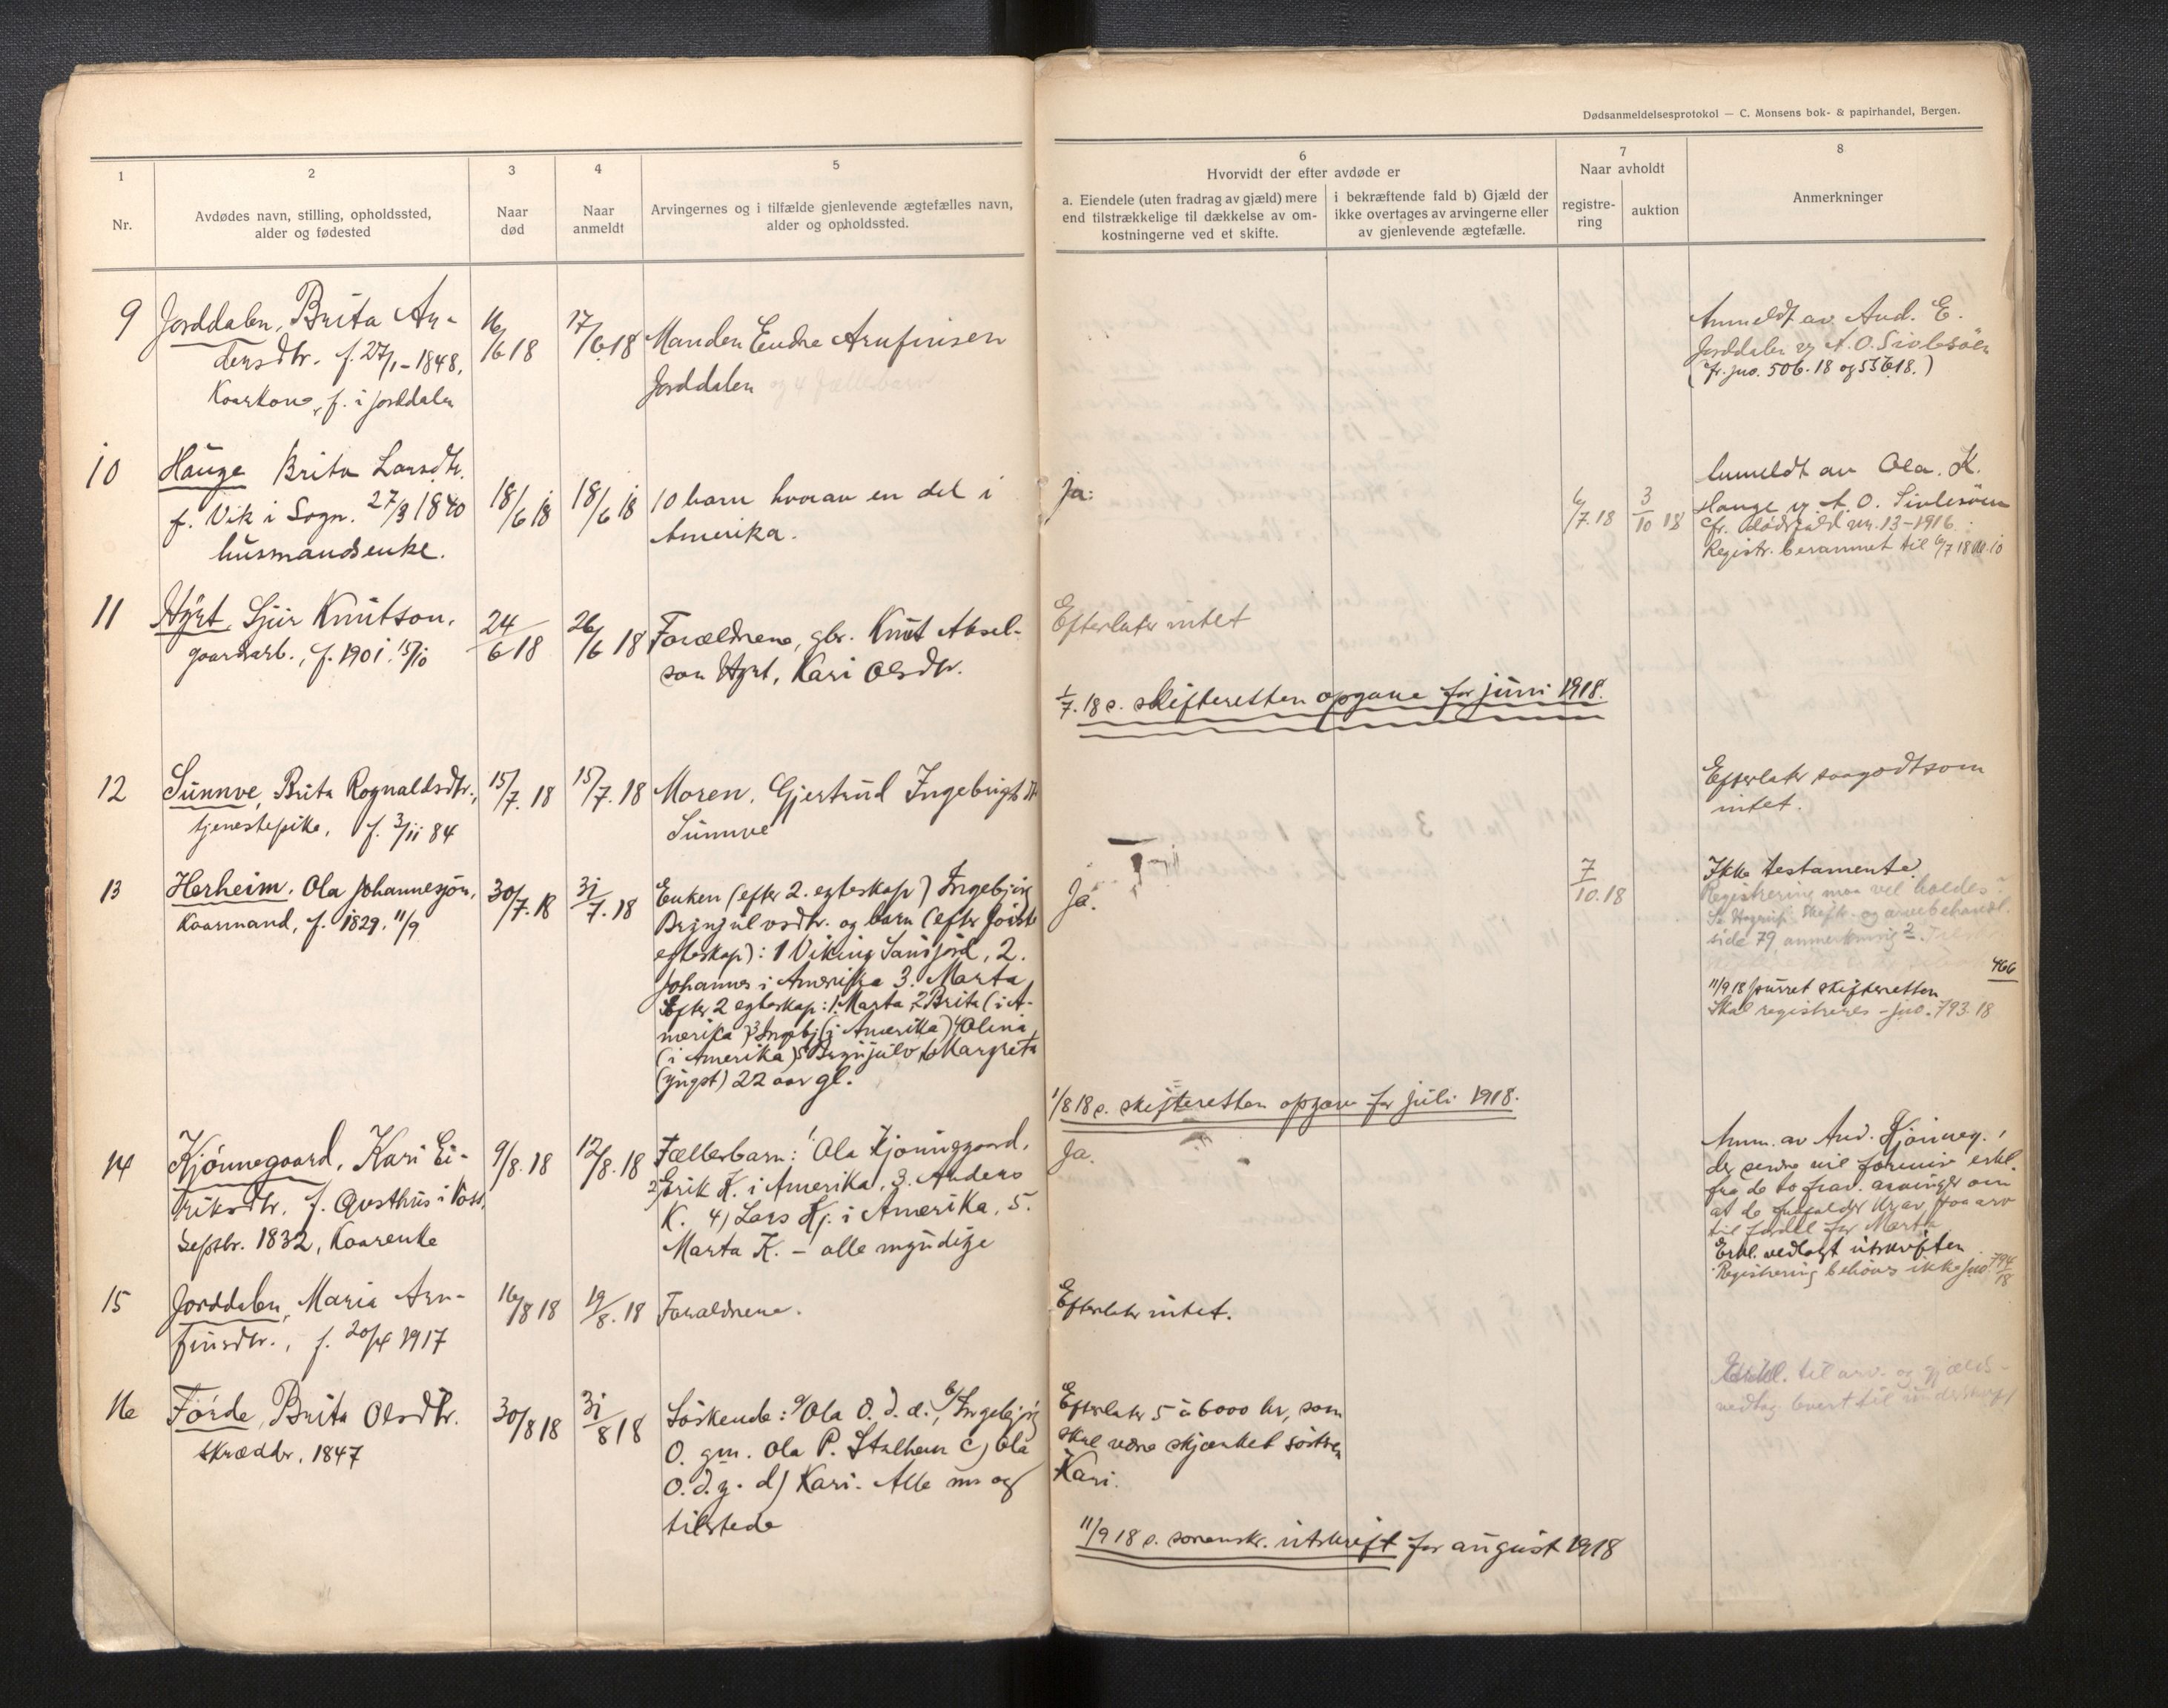 Dødsanmeldelsesprotokol — C. Monsens bok- & papirhandel, Bergen.
1
Nr.
2
Avdødes navn, stilling, opholdssted,
alder og fødested
3
Naar
død
4
Naar
anmeldt
5
Arvingernes og i tilfælde gjenlevende ægtefælles navn,
alder og opholdssted.
6
Hvorvidt der efter avdøde er
a. Eiendele (uten fradrag av gjæld) mere
end tilstrækkelige til dækkelse av om-
kostningerne ved et skifte.
i bekræftende fald b) Gjæld der
ikke overtages av arvingerne eller
av gjenlevende ægtefælle.
7
Naar avholdt
registre-
ring
auktion
8
Anmerkninger
9
Jorddalen, Brita An-
dersdtr. f. 27/1-1848,
Kaarkone, f. i Jorddalen
16/6 18
17/6 18
Manden Endre Arnfinsen
Jorddalen og 4 fællesbarn
Anmeldt av And. E.
Jorddalen og A. O. Sivlesöen
(Jfr. jno. 506.18 og 18.)
10
Hauge Brita Larsdtr.
f. Vik i Sogn. 27/3 1840
husmandsenke.
18/6 18
18/6 18
10 barn hvorav en del i
Amerika.
Ja.
6/7.18
3/10 18
Anmeldt av Ola. K.
Hauge og A. O. Sivlesöen
Cfr. dødsfald nr. 13-1916.
Registr. berammet til 6/7 18 kl. 10
11
Hyrt, Sjur Knutson,
gaardsarb., f. 1901. 15/10
24/6 18
26/6 18
Forældrene, gbr. Knut Aksel-
son Hyrt, Kari Olsdtr.
Efterlater intet
1/7.18 s. skifteretten opgave for juni 1918.
12
Sunnve, Brita Rognaldsdtr.,
tjenestepike, f. 3/11 84
15/7. 18
15/7. 18
Moren, Gjertrud Ingebrigtsdtr
Sunnve
Efterlater saagodtsom
intet.
13
Herheim, Ola Johannesjøn,
Kaarmand, f. 1829. 11/9
30/7. 18
31/7. 18
Enken (efter 2. egteskap) Ingebjörg
Brynjulvsdtr. og barn (efter første
egteskap): 1 Viking Sandfjord, 2.
Johannes i Amerika 3. Marta
Efter 2 egteskap: 1. Marta, 2 Brita (i A-
merika) 3 Ingebj (i Amerika) 4 Olina
(i Amerika) 5 Brynjulv 6 Margreta
(yngst) 22 aar gl.
Ja.
7/10.18
Ikke testamente.
Registrering maa vel holdes?
Se Skifte- og arvebehandl.
side 79 anmerkning 2.
466
11/9 18 purret skifteretten
Skal registreres - jno. 793.18
1/8 18 s. skifteretten opgave for juli 1918.
14
Kjönnegaard, Kari Ei-
riksdtr. f. Qvsthus i Voss,
Septbr. 1832, Kaarenke
9/8. 18
12/8. 18
Fællesbarn: 1 Ola Kjönnegaard,
2) Erik K. i Amerika, 3. Anders
K. 4) Lars Kj. i Amerika, 5.
Marta K. - alle myndige
Ja.
Anm. av And. Kjönneg.,
der senere vil fremvise erkl.
fra de to frav. arvinger om
at de frafalder krav paa arv
til fordel for Marta
Erkl. vedlagt utskriften.
Registrering behøves ikke jno. 794/18
15
Jorddalen, Maria Arn-
finsdtr., f. 20/4 1917
16/8 18
19/8. 18
Forældrene.
Efterlater intet.
16
Förde, Brita Olsdtr.
skrædder, 1847
30/8 18
31/8 18
Söskende: a/ Ola O. d. æ., b/ Ingebjörg
O. gm. Ola P. Stalheim c) Ola
O. d. y. d) Kari. Alle mn og
tilstede
Efterlater 5 à 6000 kr, som
skal være skjænket søstren
Kari.
Erkl. til arv. og gjælds-
vedtag. levert til underskrift
11/9 18 s. sorenskr. utskrift for august 1918